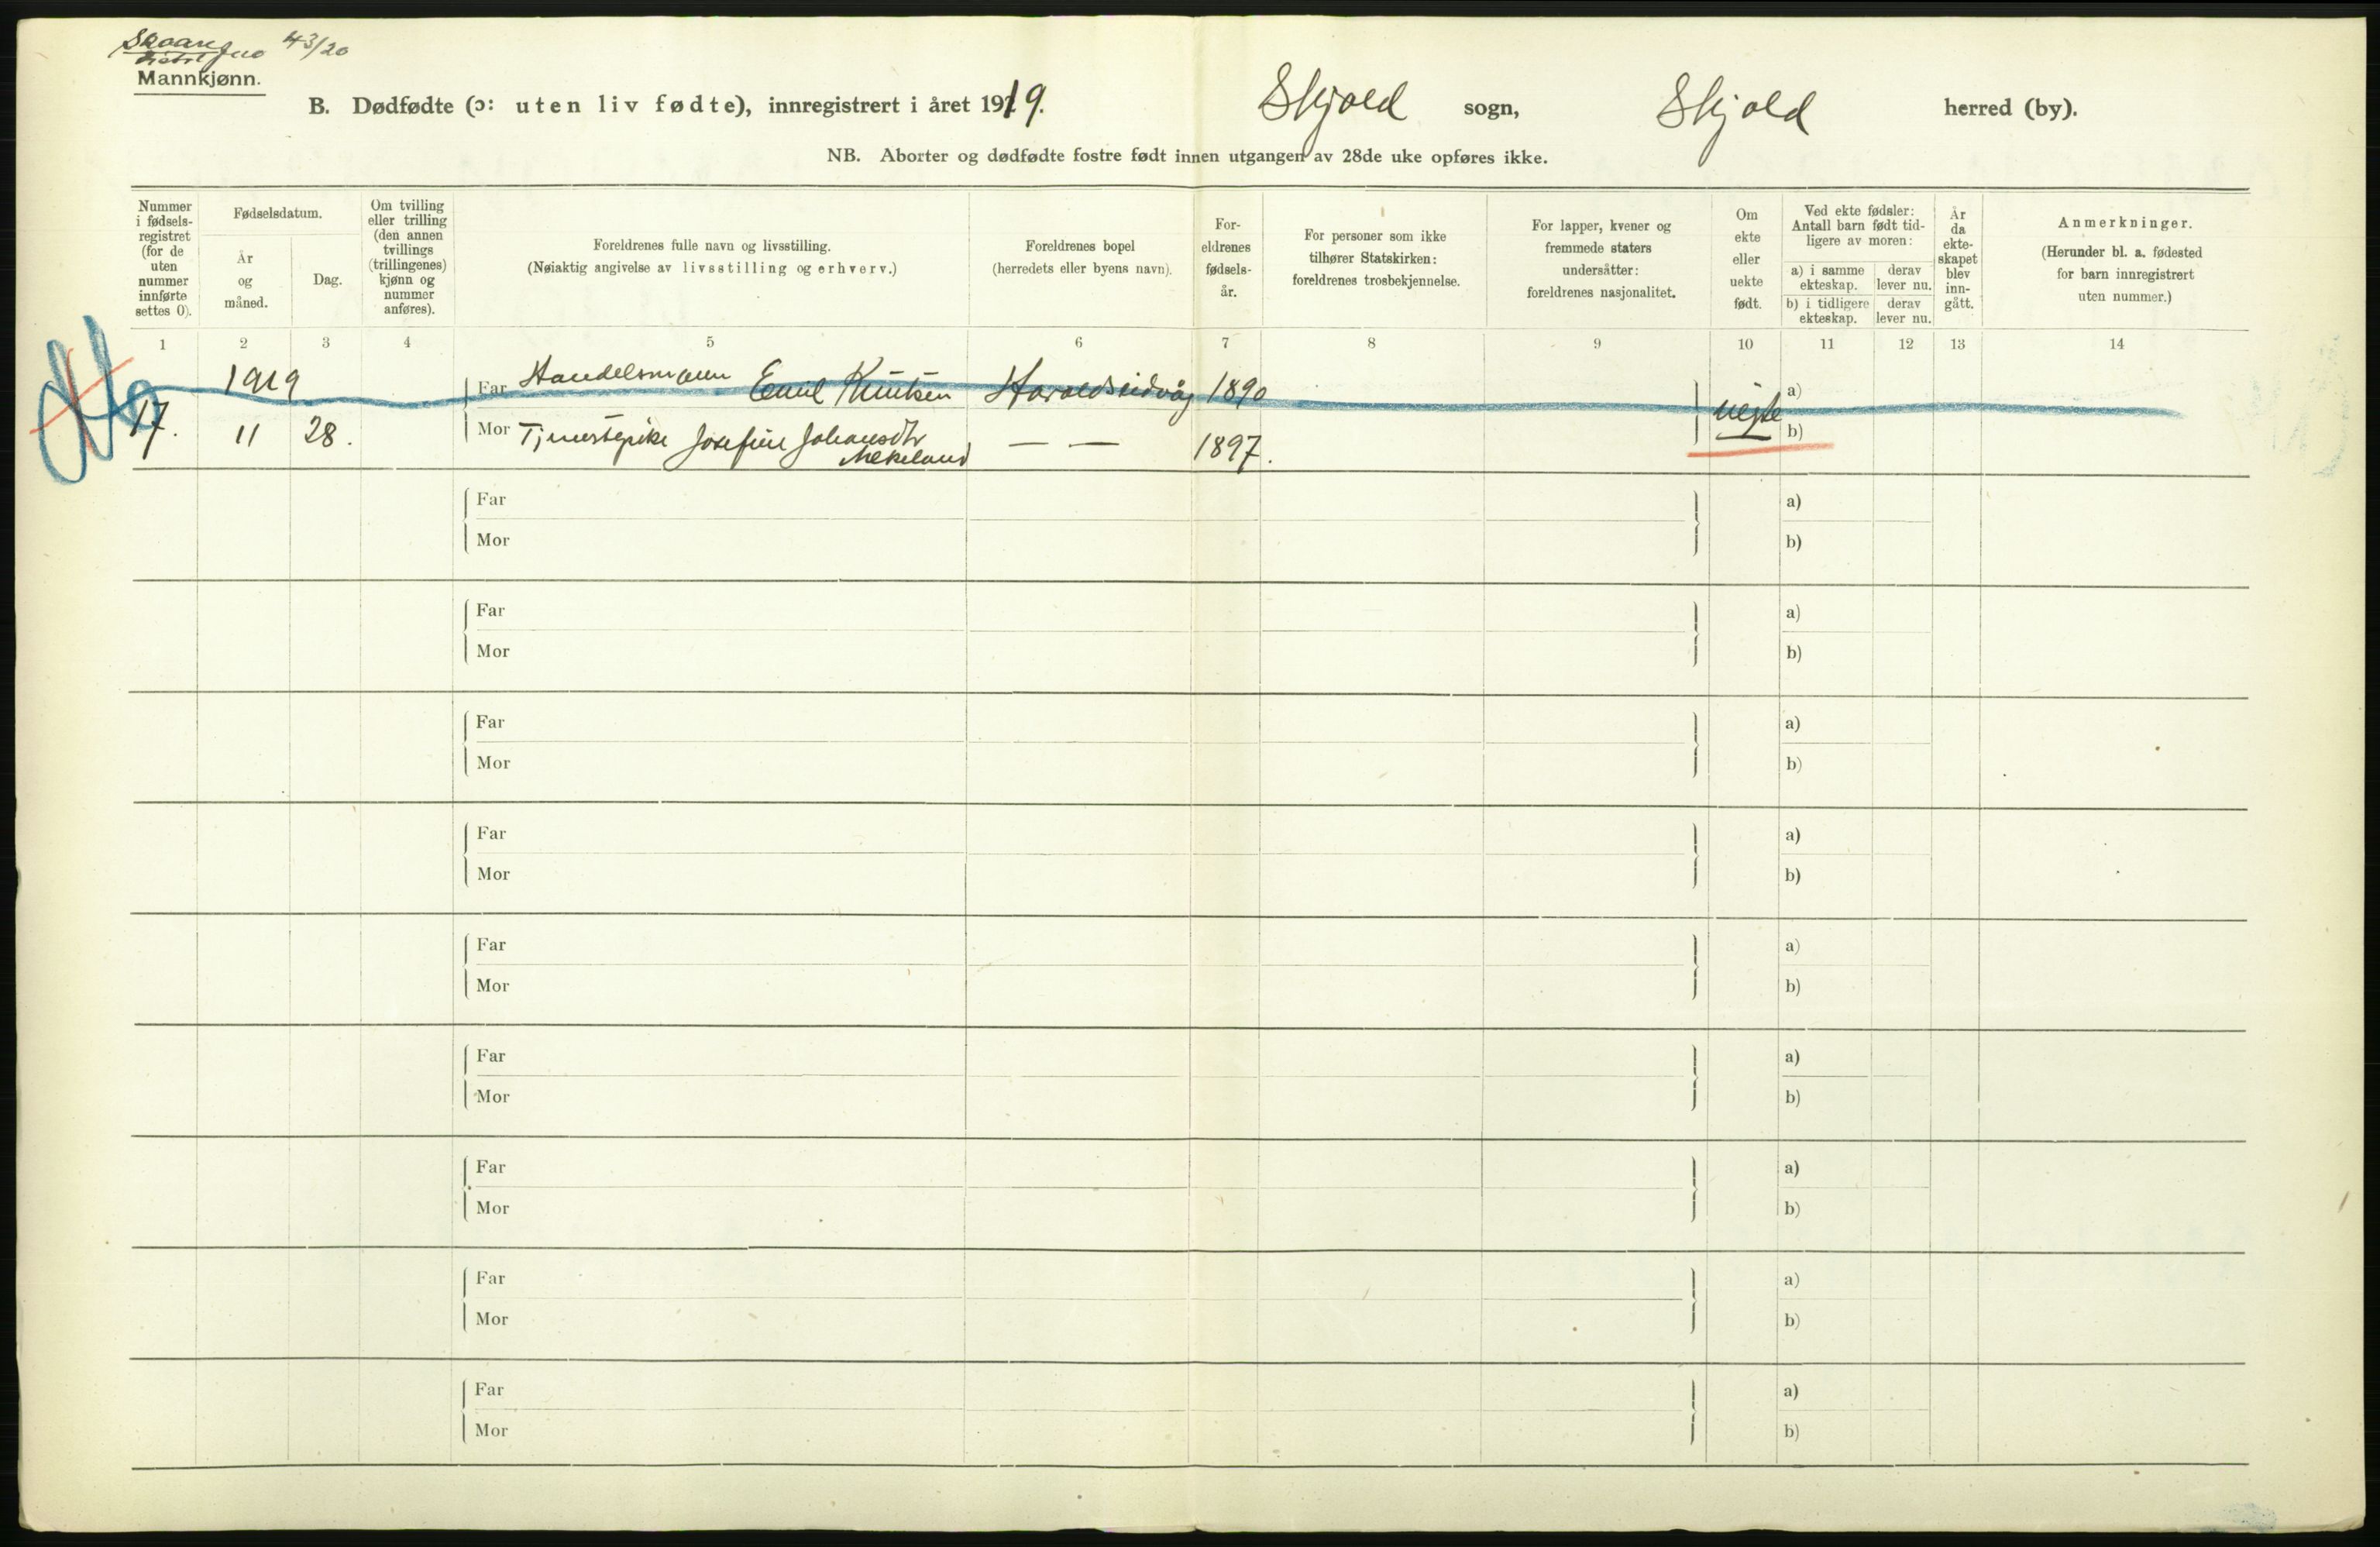 43/20
Mannkjønn.
B. Dødfødte (ɔ: uten liv fødte), innregistrert i året 1919. Skjold sogn, Skjold herred (by).
NB. Aborter og dødfødte fostre født innen utgangen av 28de uke opføres ikke.
Nummer i fødsels-registret (for de uten nummer innførte settes 0).
Fødselsdatum.
År og måned.
Dag.
Om tvilling eller trilling (den annen tvillings (trillingenes) kjønn og nummer anføres).
Foreldrenes fulle navn og livsstilling.
(Nøiaktig angivelse av livsstilling og erhverv.)
Foreldrenes bopel
(herredets eller byens navn).
For-eldrenes fødsels-år.
For personer som ikke
tilhører Statskirken:
foreldrenes trosbekjennelse.
For lapper, kvener og
fremmede staters
undersåtter:
foreldrenes nasjonalitet.
Om ekte eller uekte født.
Ved ekte fødsler:
Antall barn født tid-
ligere av moren:
a) i samme ekteskap. derav lever nu.
b) i tidligere ekteskap. derav lever nu.
År da ekte-skapet blev inn-gått.
Anmerkninger.
(Herunder bl. a. fødested
for barn innregistrert
uten nummer.)
1 2 3 4 5 6 7 8 9 10 11 12 13 14
1919 Far Handelsmann Emil Knutsen Haraldseidvåg 1890 a)
17. 11 28. Mor Tjenestepike Josefine Johansdtr — — 1897. uegte b)
Far a)
Mor b)
Far a)
Mor b)
Far a)
Mor b)
Far a)
Mor b)
Far a)
Mor b)
Far a)
Mor b)
Far a)
Mor b)
Far a)
Mor b)
Far a)
Mor b)